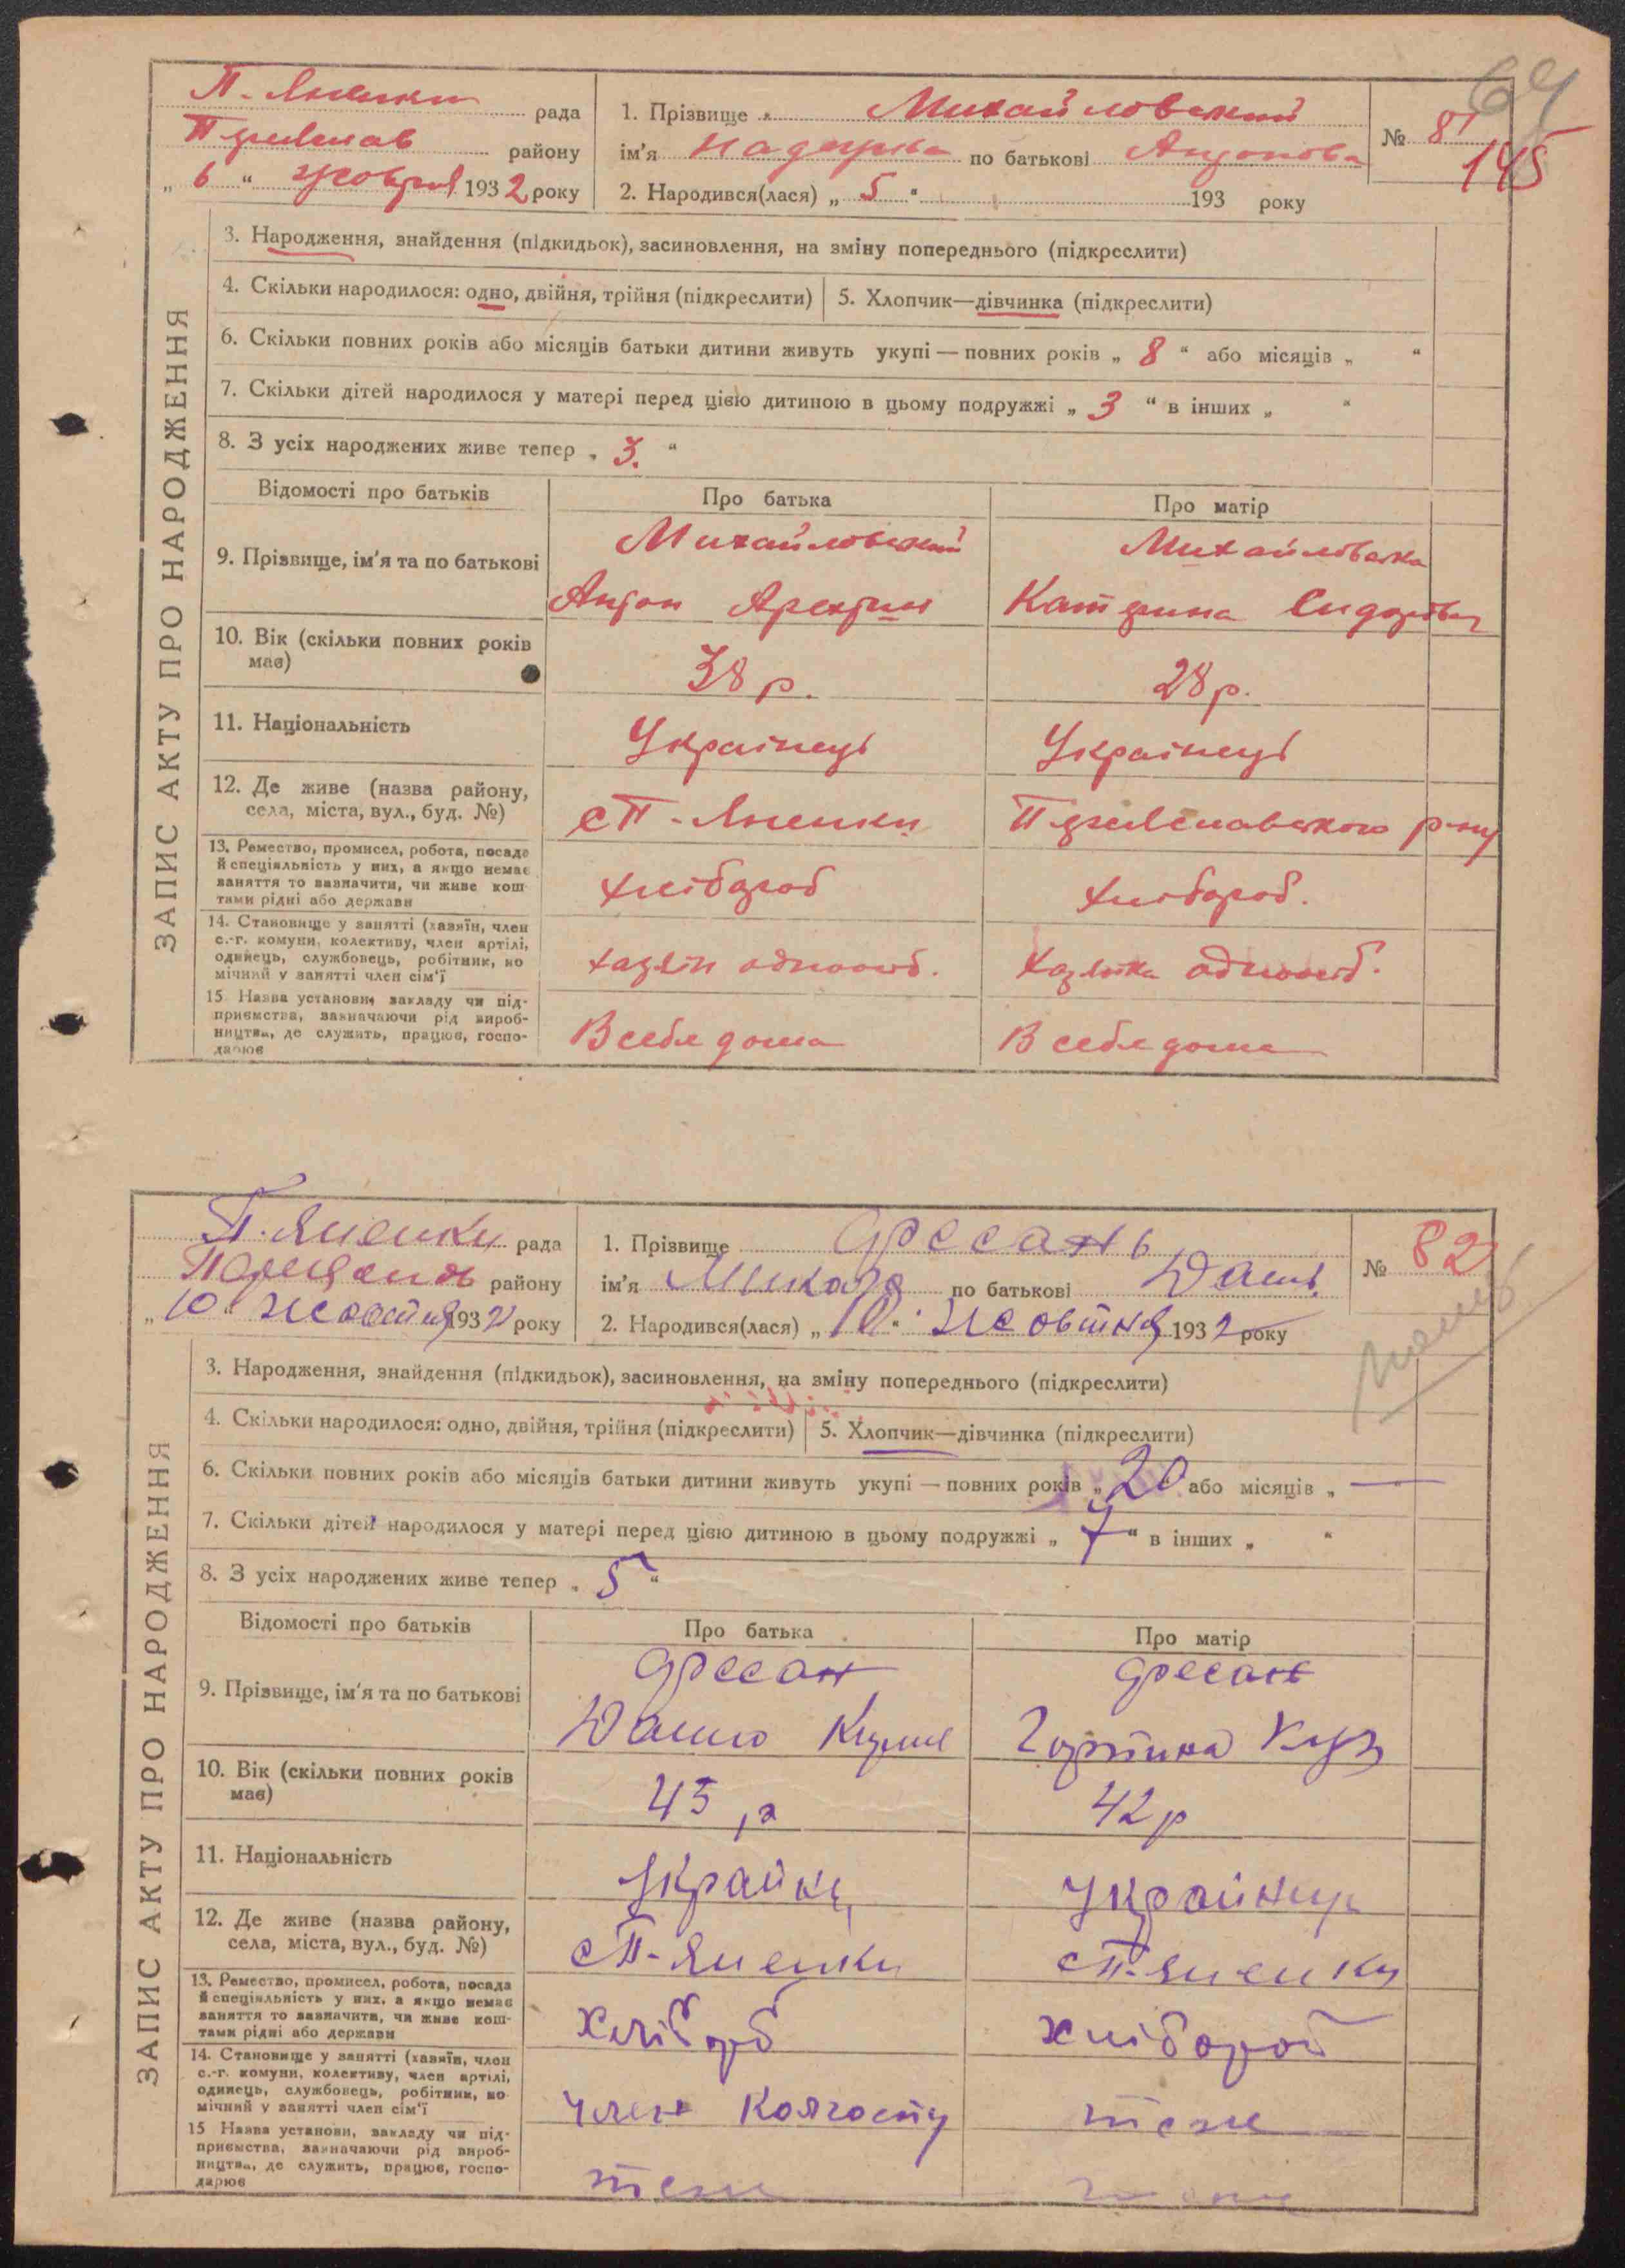 69
145
ЗАПИС АКТУ ПРО НАРОДЖЕННЯ
П-Яненки рада
району
„ 6 “ жовтня 1932 року
1. Прізвище Михайловский
ім'я по батькові Антонова
№ 81
2. Народився(лася) „ 5 “ 193 року
3. Народження, знайдення (підкидьок), засиновлення, на зміну попереднього (підкреслити)
4. Скільки народилося: одно, двійня, трійня (підкреслити)
5. Хлопчик—дівчинка (підкреслити)
6. Скільки повних років або місяців батьки дитини живуть укупі — повних років „ 8 “ або місяців „ “
7. Скільки дітей народилося у матері перед цією дитиною в цьому подружжі „ 3 “ в інших „ “
8. З усіх народжених живе тепер „ 3. “
Відомості про батьків
Про батька
Про матір
9. Прізвище, ім'я та по батькові
Михайловский
Антон
Михайловска
Катерина
10. Вік (скільки повних років
має)
38 р.
28 р.
11. Національність
Українець
Українець
12. Де живе (назва району,
села, міста, вул., буд. №)
с П-Яненки
р-ну
13. Ремество, промисел, робота, посада
й спеціяльність у них, а якщо немає
заняття то зазначити, чи живе кош-
тами рідні або держави
хлібороб
хлібороб.
14. Становище у занятті (хазяїн, член
с.-г. комуни, колективу, член артілі,
одинець, службовець, робітник, по
мічний у занятті член сім'ї
хазяін одноосіб.
хазяйка одноосіб.
15 Назва установи, закладу чи під-
приємства, зазначаючи рід вироб-
ництва, де служить, працює, госпо-
дарює
В себе дома
В себе дома
ЗАПИС АКТУ ПРО НАРОДЖЕННЯ
П-Яненки рада
району
„ 10 “ жовтня 1932 року
1. Прізвище
ім'я Микола по батькові
№ 82
2. Народився(лася) „ 10 “ жовтня 1932 року
3. Народження, знайдення (підкидьок), засиновлення, на зміну попереднього (підкреслити)
4. Скільки народилося: одно, двійня, трійня (підкреслити)
5. Хлопчик—дівчинка (підкреслити)
6. Скільки повних років або місяців батьки дитини живуть укупі — повних років „ 20 “ або місяців „ —
7. Скільки дітей народилося у матері перед цією дитиною в цьому подружжі „ 7 “ в інших „ “
8. З усіх народжених живе тепер „ 5 “
Відомості про батьків
Про батька
Про матір
9. Прізвище, ім'я та по батькові
10. Вік (скільки повних років
має)
45 р
42 р
11. Національність
12. Де живе (назва району,
села, міста, вул., буд. №)
с П-Яненки
с П-Яненки
13. Ремество, промисел, робота, посада
й спеціяльність у них, а якщо немає
заняття то зазначити, чи живе кош-
тами рідні або держави
хлібороб
14. Становище у занятті (хазяїн, член
с.-г. комуни, колективу, член артілі,
одинець, службовець, робітник, по
мічний у занятті член сім'ї
член колгоспу
теж
15 Назва установи, закладу чи під-
приємства, зазначаючи рід вироб-
ництва, де служить, працює, госпо-
дарює
теж